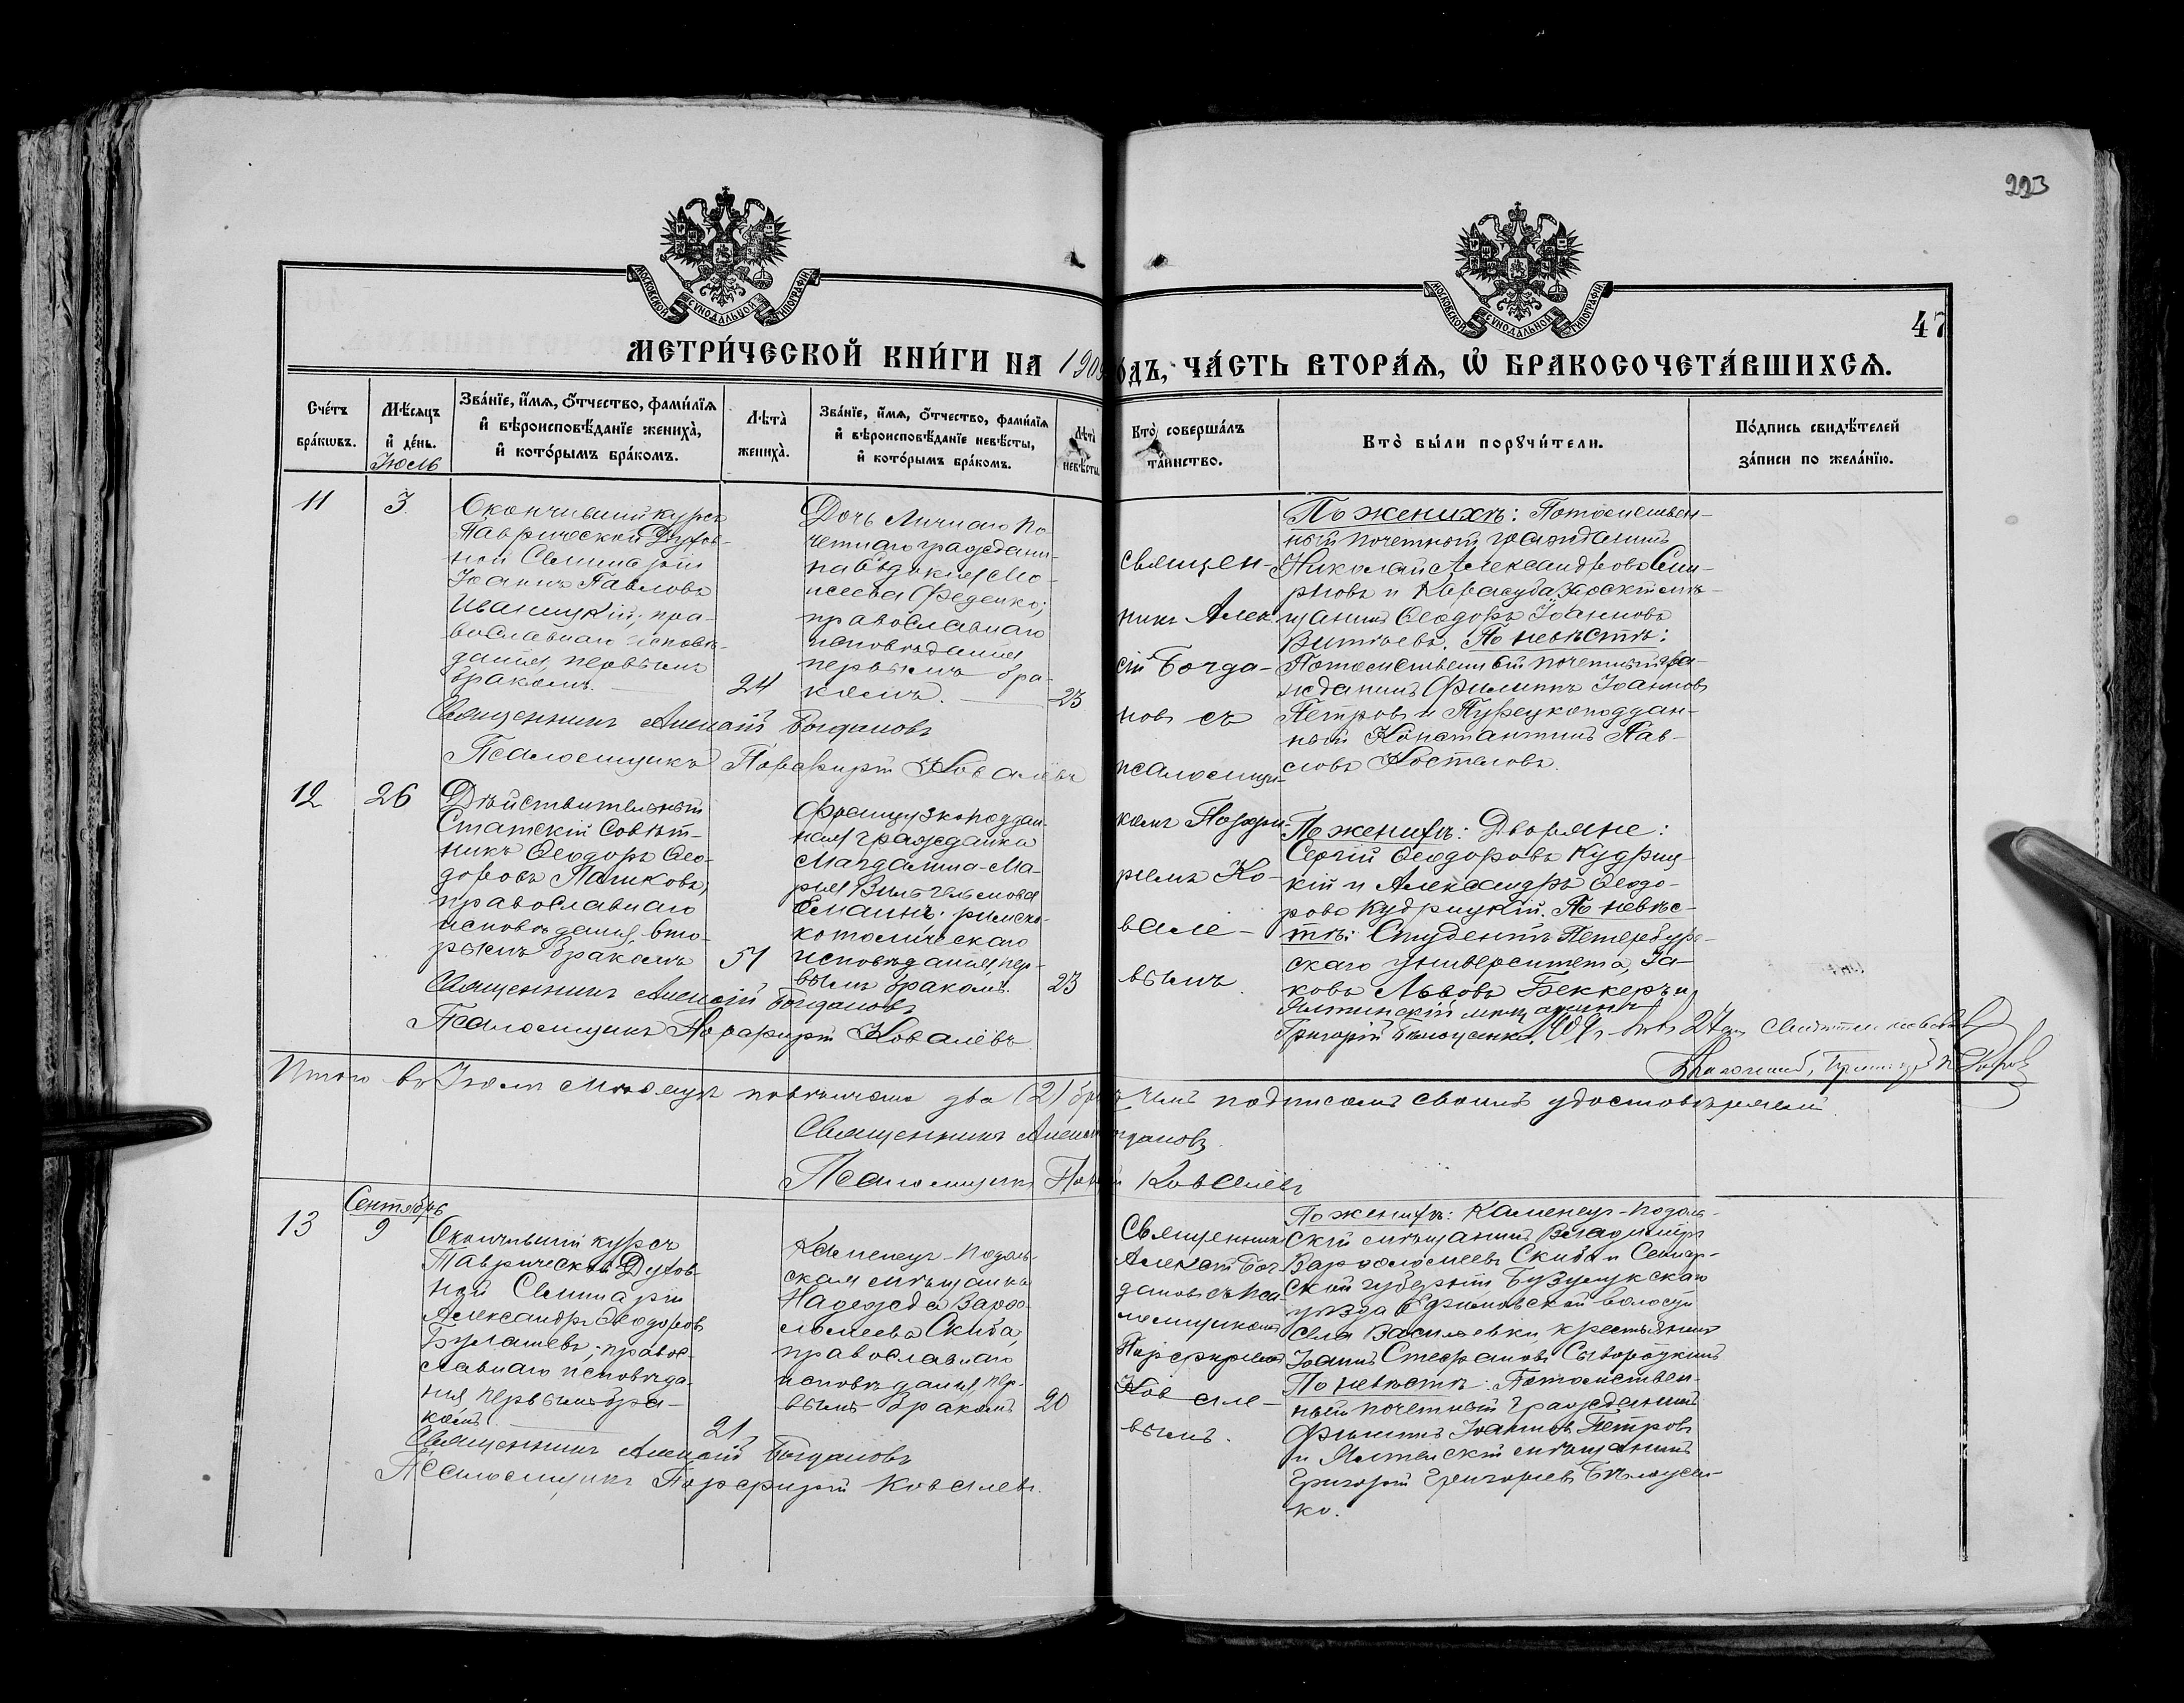 223
МОСКОВСКОЙ СУНОДАЛЬНОЙ ТИПОГРАФІИ
МОСКОВСКОЙ СУНОДАЛЬНОЙ ТИПОГРАФІИ
47
МЕТРИ́ЧЕСКОЙ КНИ́ГИ НА 190 ОДЪ, ЧА́СТЬ ВТОРА́Ѧ, Ѡ҆ БРАКОСОЧЕТА́ВШИХСѦ.
Сче́тъ бра́кѡвъ.
Мѣ́сѧцъ и҆ де́нь.
Зва́нїе, и҆́мѧ, ѻ҆́тчество, фами́лїѧ и҆ вѣроисповѣ́данїе жениха̀, и҆ кото́рымъ бра́комъ.
Лѣта̀ жениха̀.
Зва́нїе, и҆́мѧ, ѻ҆́тчество, фами́лїѧ и҆ вѣроисповѣ́данїе невѣ́сты, и҆ кото́рымъ бра́комъ.
Лѣта̀ невѣ́сты.
Кто̀ соверша́лъ та́инство.
Кто̀ бы́ли порꙋчи́тели.
По́дпись свидѣ́телей за́писи по жела́нїю.
Июль
11
3.
Окончившій курсъ
Таврической Духов-
ной Семинаріи
Іоаннъ Павловъ
Иваницкій; пра-
вославнаго исповѣ-
данія, первымъ
бракомъ.
24
Дочь Личнаго По-
четнаго граждани-
на Евдокія Мо-
исеева Феденко;
православнаго
исповѣданія
первымъ бра-
комъ.
23
Священ-
никъ Алек-
сій Богда-
новъ съ
псаломщи-
комъ Порфи-
ріемъ Ко-
вале-
вымъ
По женихѣ: Потомствен-
ный почетный гражданинъ
Николай Александровъ Сми-
рновъ и Карасубазарскій мѣ-
щанинъ Ѳеодоръ Іоанновъ
По невѣстѣ:
Потомственный почетный гра-
жданинъ Филиппъ Іоанновъ
Петровъ и Турецкоподдан-
ный Константинъ Пав-
ловъ Косталовъ.
Священникъ Алексій Богдановъ
Псаломщикъ Порфирій Ковалёвъ
12
26
Дѣйствительный
Статскій Совѣт-
никъ Ѳеодоръ Ѳео-
доровъ Пашковъ,
православнаго
исповѣданія, вто-
рымъ бракомъ
51
Французкоподдан-
ная гражданка
Магдалина-Ма-
рія Вильгельмова
римско-
католическаго
исповѣданія, пер-
вымъ бракомъ.
23
По женихѣ: Дворяне:
Сергій Ѳеодоровъ Кудриц-
кій и Александръ Ѳеодо-
ровъ Кудрицкій. По невѣс-
тѣ: Студентъ Петербург-
скаго университета, Іа-
ковъ Львовъ Беккеръ и
Ялтинскій мѣщанинъ
Григорій Бѣлоусенко.
Священникъ Алексій Богдановъ
Псаломщикъ Порфирій Ковалёвъ
Итого въ Іюлѣ мѣсяцѣ повѣнчано два (2) брака чемъ подписомъ своимъ удостовѣряемъ.
Священникъ Алексій Богдановъ
Псаломщикъ Порфирій Ковалёвъ
Сентябрь
13
9
Окончившій курсъ
Таврической Духов-
ной Семинаріи
Александръ Ѳеодоровъ
Булашевъ; правос-
лавнаго исповѣда-
нія, первымъ бра-
комъ.
21
Каменецъ-Подоль-
ская мѣщанка
Надежда Варфо-
ломеева Скиба,
православнаго
исповѣданія, пер-
вымъ бракомъ
20
Священникъ
Алексій Бог-
дановъ съ пса-
ломщикомъ
Порфиріемъ
Ковале-
вымъ.
По женихѣ: Каменецъ-Подоль-
скій мѣщанинъ Владиміръ
Варфоломеевъ Скиба и Самар-
ской губерніи Бузулукскаго
уѣзда волости
села Васильевки, крестьянинъ
Іоаннъ Стефановъ Сывороткинъ
По невѣстѣ: Потомствен-
ный почетный гражданинъ
Филиппъ Іоанновъ Петровъ
и Ялтинскій мѣщанинъ
Григорій Григорьевъ Бѣлоусен-
ко.
Священникъ Алексій Богдановъ
Псаломщикъ Порфирій Ковалевъ.